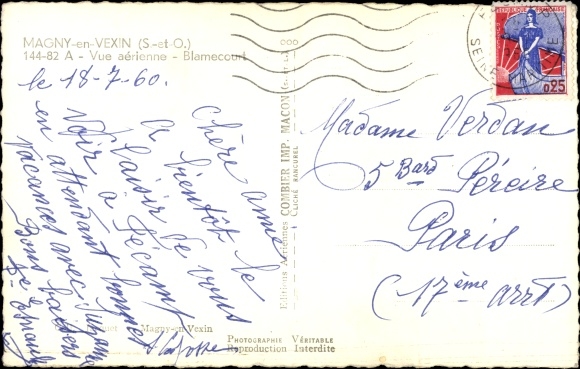 MAGNY-en-VEXIN (S.-et-O.)
144-82 A - Vue aérienne - Blamecourt
le 18-7-60.
Chère amie
A bientôt le
plaisir de vous
voir à Fécamp
en attendant bonnes
vacances avec
Bons baisers
Editions Aériennes COMBIER IMP. MACON
CLICHÉ RANCUREL
Magny-en-Vexin
PHOTOGRAPHIE VÉRITABLE
Reproduction Interdite
REPUBLIQUE FRANÇAISE
0,25
SEINE
Madame Verdan
5 Bard Péreire
Paris
(17ème arrt)